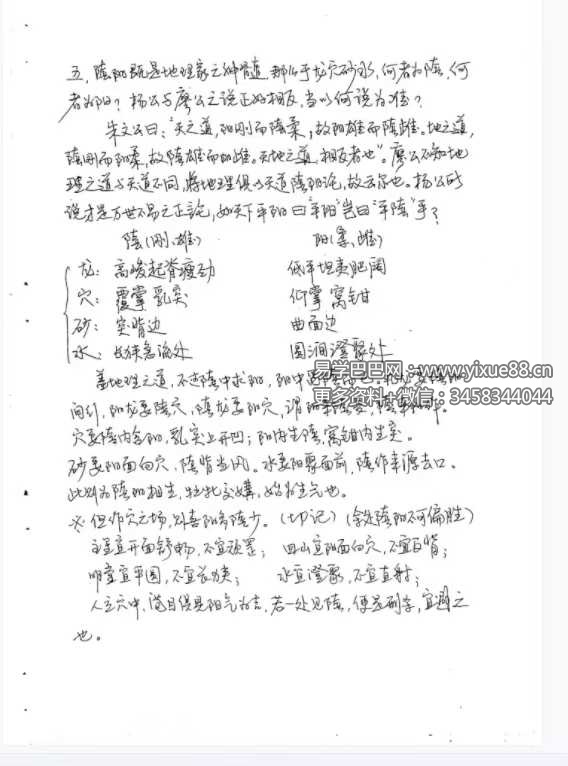 五，陰阳既是地理家之神骨道，那么于龙穴砂水，何者为陰，何
者为阳？杨公与廖公之说正好相反，当以何说为准？
朱文公曰："天之道，阳刚而陰柔，故阳雄而陰雌。地之道，
陰刚而阳柔，故陰雄而阳雌。天地之道，相反者也"。廖公不知地
理之道与天道不同，将地理俱以天道陰阳论，故云尔也。杨公所
说才是万世不易之正论，如天下平阳曰"平阳"岂曰"平陰"乎？
陰(刚、雄) 阳(柔、雌)
龙：高峻起脊瘦劲 低平坦夷肥阔
穴：覆掌乳突 仰掌窝钳
砂：突背边 曲面边
水：长狭急流处 圆润澄聚处
盖地理之道，不过陰中求阳，阳中
易学巴巴网：www.yixue88.cn
更多资料+微信：3458344044
阳龙要陰穴，陰龙要阳穴，谓
穴要陰内含阳，乳突上开凹；阳内生陰，窝钳内生突。
砂要阳面向穴，陰背当风。水要阳聚面前，陰作来源去口。
此则为陰阳相生，牝牡交媾，始为生气也。
※但作穴之场，则喜阳多陰少。(切记)(余处陰阳不可偏胜)
主星宜开面舒畅，不宜顽罡； 四山宜阳面向穴，不宜反背；
明堂宜平圆，不宜长狭； 水宜澄聚，不宜直射；
人立穴中，满目俱是阳气为吉，若一处见陰，便是刑害，宜避之
也。